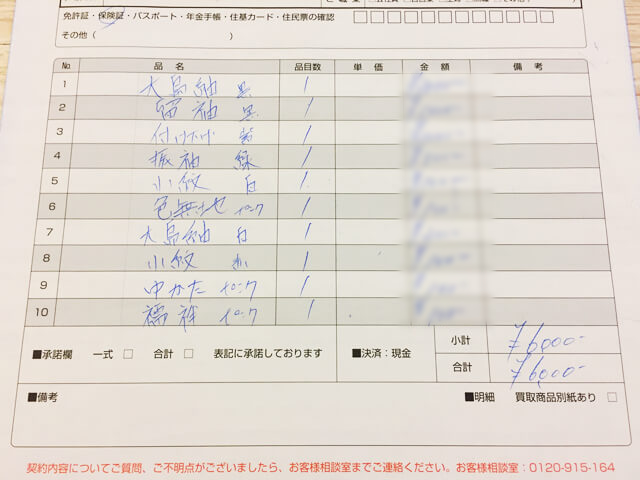 免許証・保険証・パスポート・年金手帳・住基カード・住民票の確認
その他（　　　）
No. 品名 品目数 単価 金額 備考
1 大島紬 黒 1
2 留袖 黒 1
3 付け下げ 1
4 振袖 緑 1
5 小紋 白 1
6 色無地 ピンク 1
7 大島紬 白 1
8 小紋 1
9 ゆかた ピンク 1
10 襦袢 ピンク 1
■承諾欄 一式 □ 合計 □ 表記に承諾しております ■決済：現金 小計 ¥6,000-
合計 ¥6,000-
■備考 ■明細 買取商品別紙あり □
契約内容についてご質問、ご不明点がございましたら、お客様相談室までご連絡ください。お客様相談室：0120-915-164